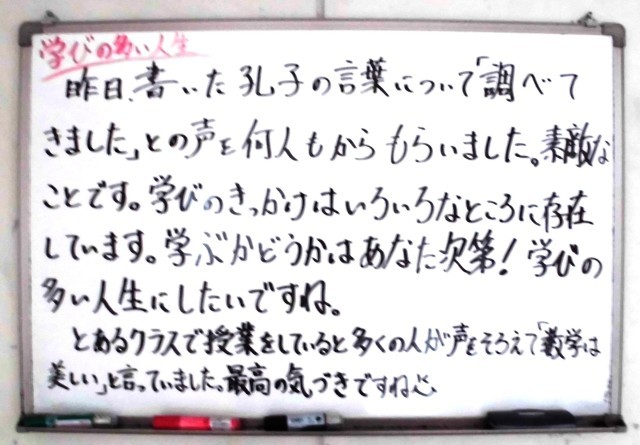 学びの多い人生
昨日、書いた孔子の言葉について「調べて
きました」との声を何人もからもらいました。素敵な
ことです。学びのきっかけはいろいろなところに存在
しています。学ぶかどうかはあなた次第！学びの
多い人生にしたいですね。
とあるクラスで授業をしていると多くの人が声をそろえて「数学は
美しい」と言っていました。最高の気づきですね